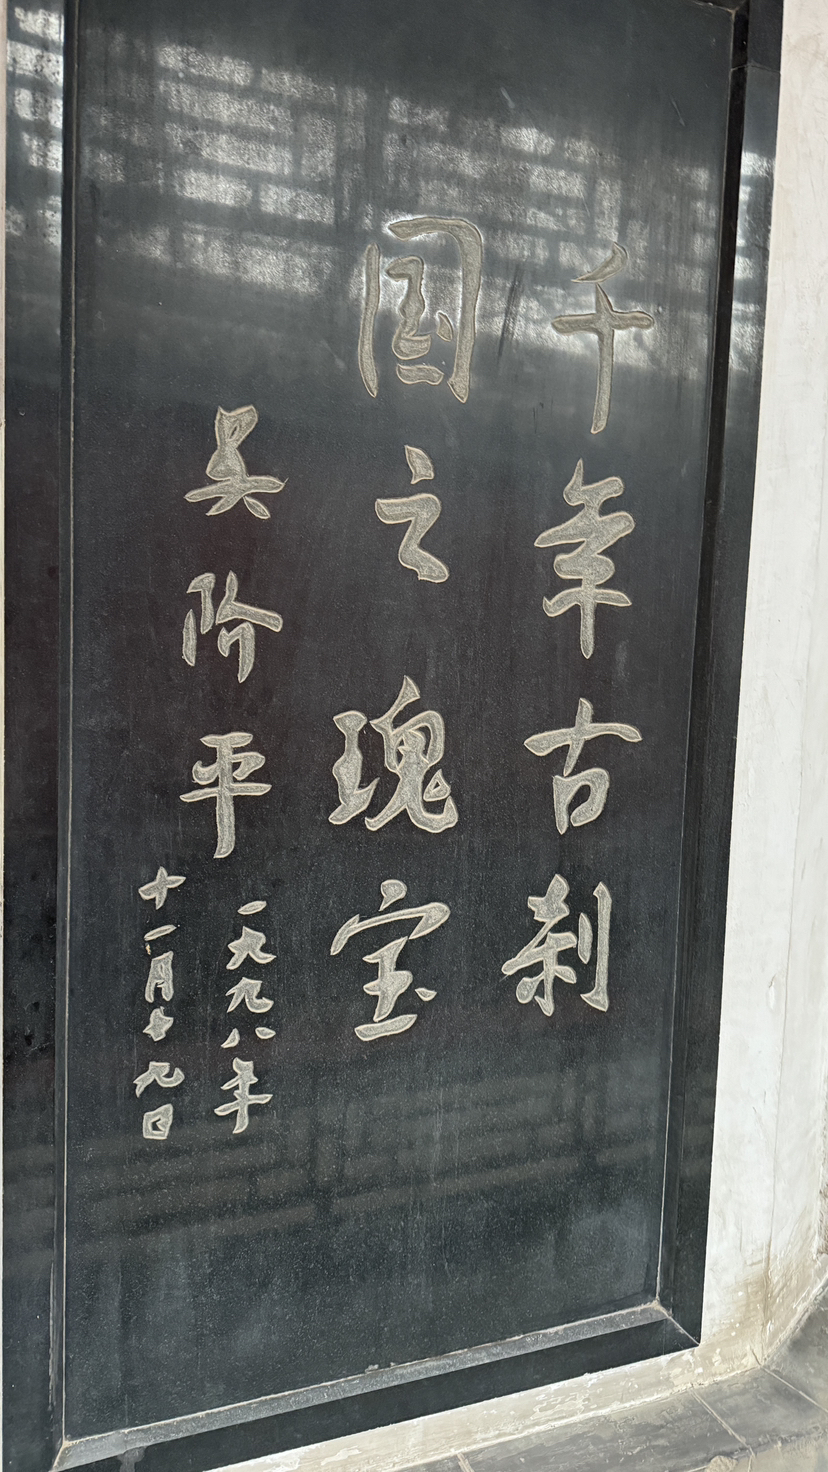 千年古刹
国之瑰宝
吴阶平
一九九八年
十一月十九日